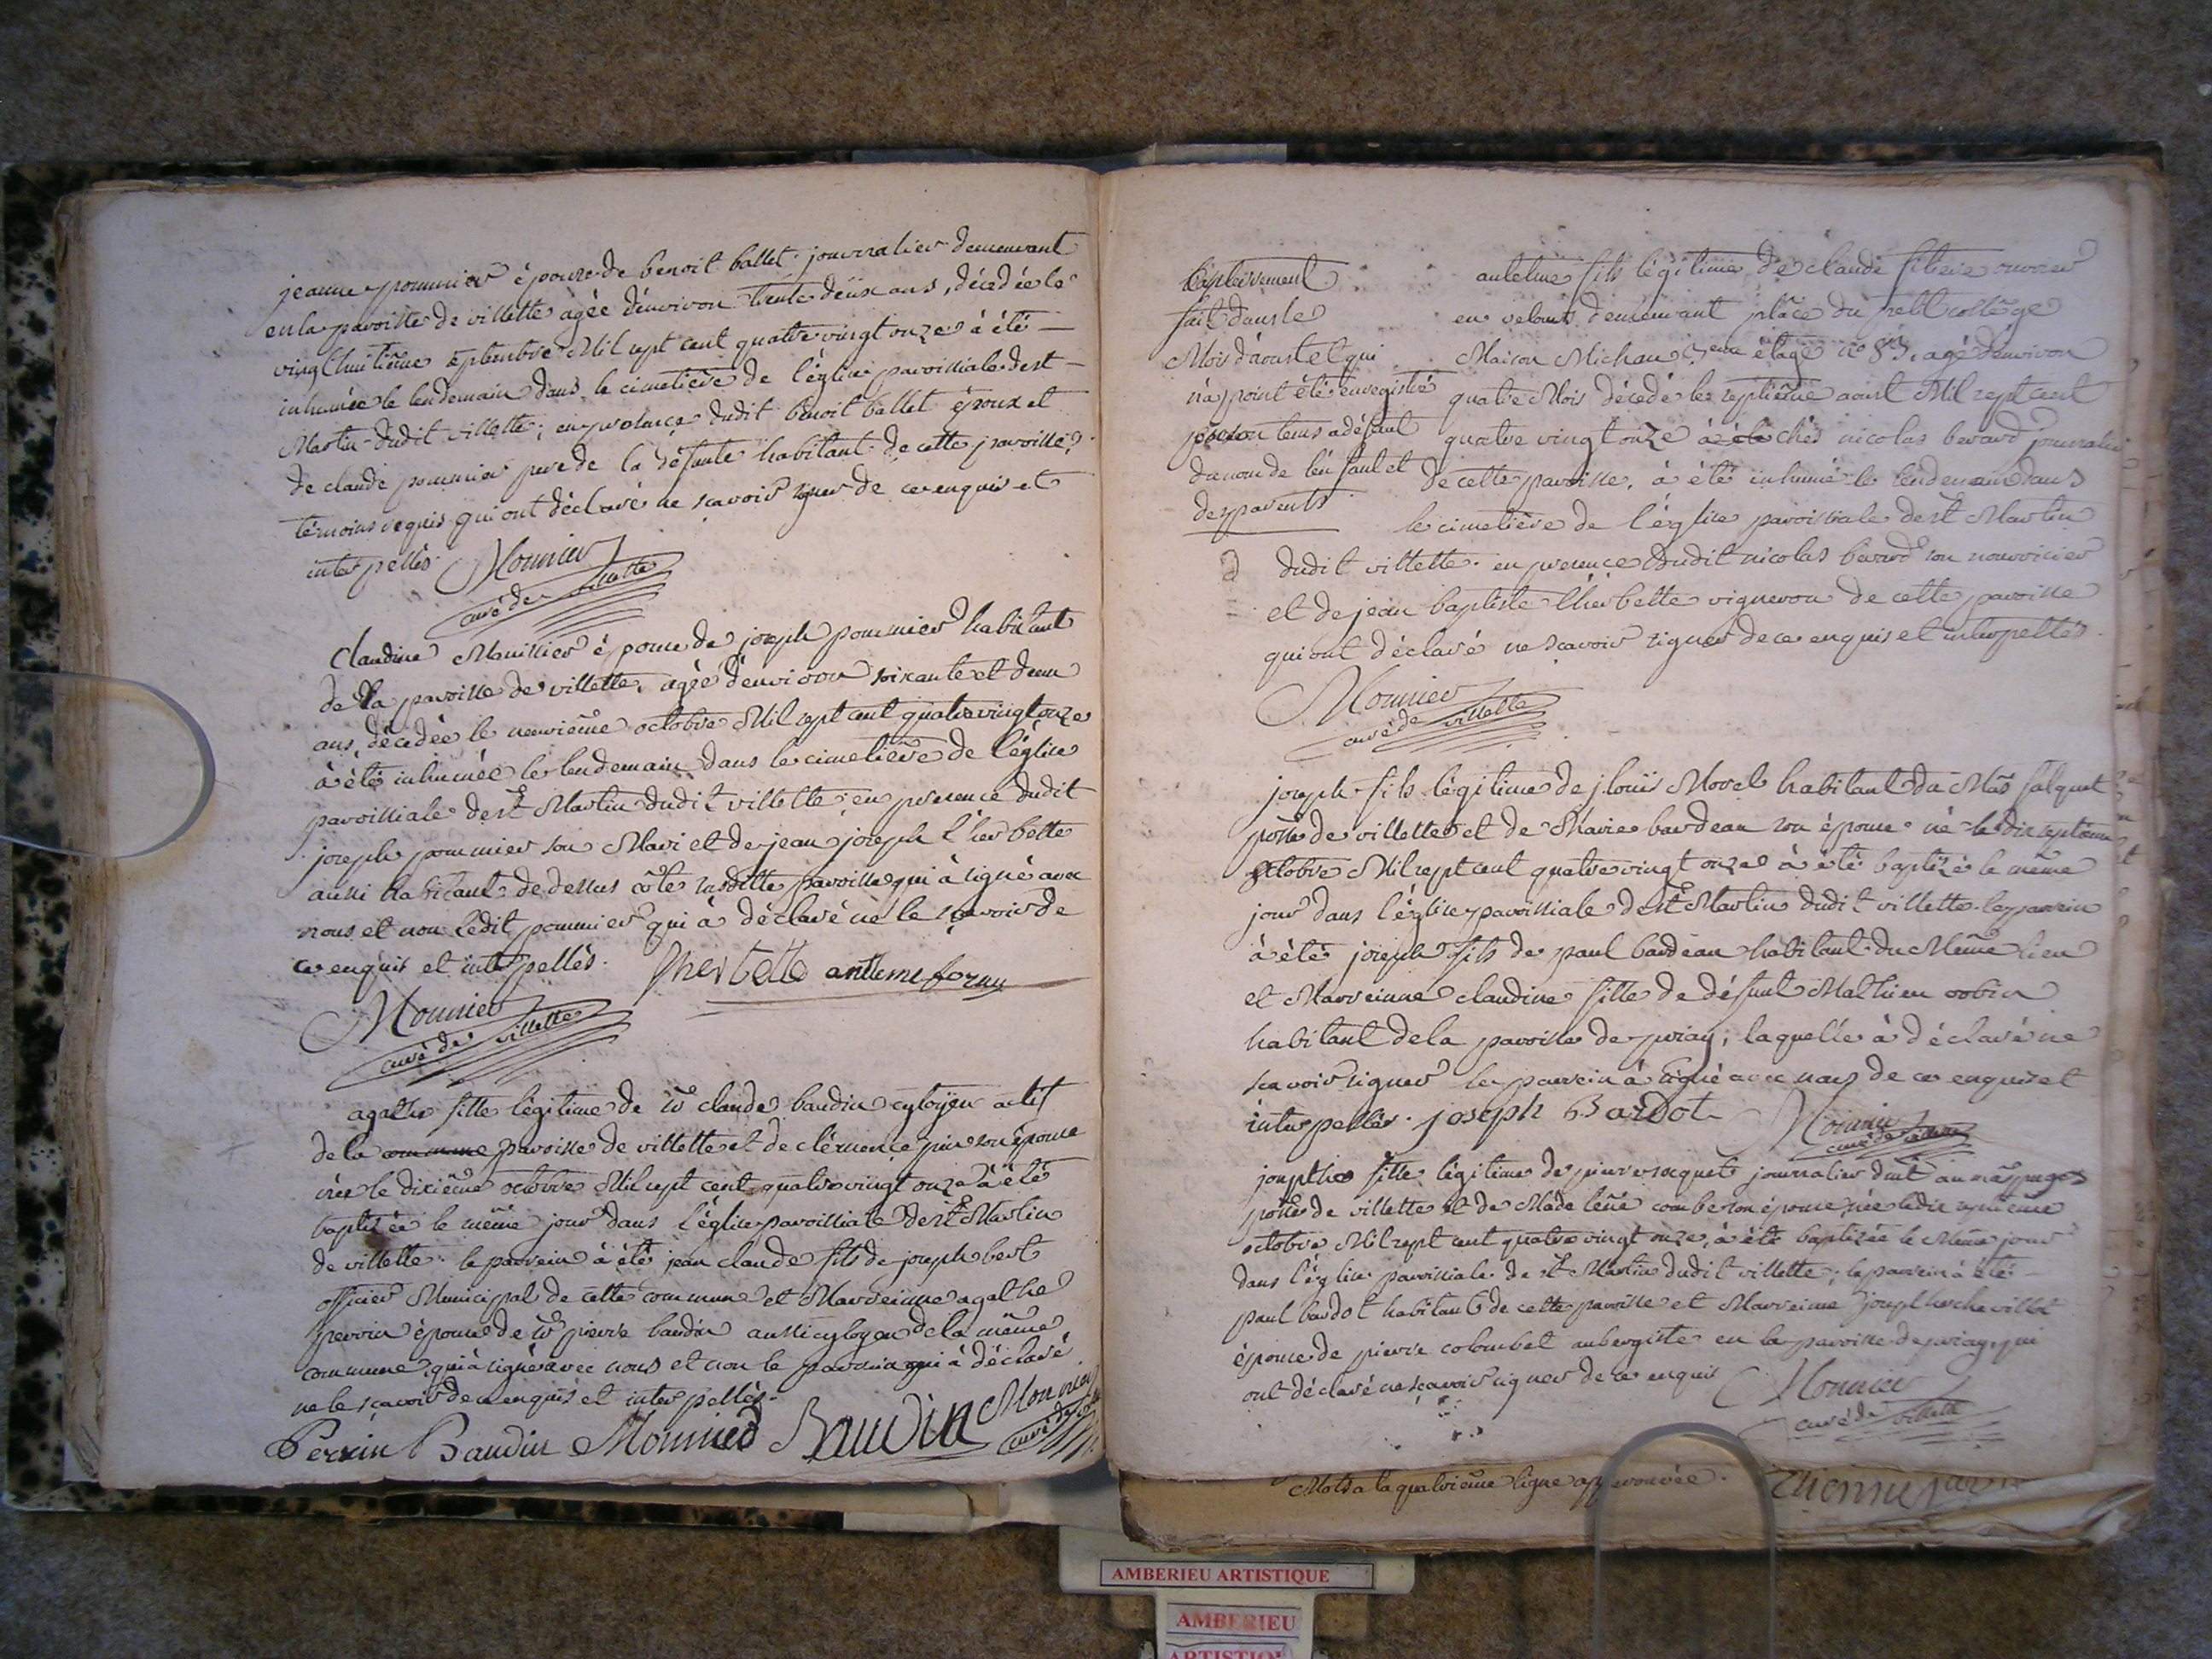 jeanne pommier épouze de benoit ballet journalier demeurant
en la paroisse de villette agée d'environ trente deux ans, décédée le
vingt huitième septembre Mil sept cent quatre vingt onze à été
inhumée le lendemain dans le cimetière de l'église paroissiale de st
Martin dudit villette; en présence dudit benoit ballet époux et
de claude pommier pere de la défunte habitant de cette paroisse
témoins requis qui ont déclaré ne scavoir signer de ce enquis et
interpellés. Monnier
curé de villette
Claudine épouse de joseph pommier habitant
de la paroisse de villette, agée d'environ soixante et deux
ans, décédée le neuvième octobre Mil sept cent quatre vingt onze
à été inhumée le lendemain dans le cimetière de l'église
paroissiale de st Martin dudit villette; en présence dudit
joseph pommier son Mari et de jean joseph l'herbette
aussi habitant de dessus côte susditte paroisse qui à signé avec
nous et non ledit pommier qui à déclaré ne le scavoir de
ce enquis et interpellés. lherbette antleme forny
Monnier
curé de villette
agathe fille légitime de sr claude baudin cytoyen actif
de la commune paroisse de villette et de clémence son épouse
née le dixième octobre Mil sept cent quatre vingt onze à été
baptisée le même jour dans l'église paroissiale de st Martin
de villette. le parrein à été jean claude fils de joseph bert
officier Municipal de cette commune et Marreinne agathe
perrin épouse de sr pierre baudin aussi cytoyen de la même
commune qui à signé avec nous et non le parrein qui à déclaré
ne le scavoir de ce enquis et interpellés.
Perrin Baudin Monnier Baudin Monnier
curé de
fait dans le
Mois d'aoust et qui
n'a point été enregistré
tems a défaut
du nom de l'enfant et
des parents
antelme fils légitime de claude ouvrier
en velours demeurant place du petit collège
Maison Michau étage no 83, agé d'environ
quatre Mois décédé le septième aoust Mil sept cent
quatre vingt onze chés nicolas berard journalier
de cette paroisse, à été inhumé le lendemain dans
le cimetière de l'église paroissiale de st Martin
dudit villette. en présence dudit nicolas berard son nourricier
et de jean baptiste l'herbette vigneron de cette paroisse
qui ont déclaré ne scavoir signer de ce enquis et interpellés.
Monnier
curé de villette
joseph fils légitime de j louis Morel habitant du Mas falquet
psse de villette et de Marie bardeau son épouse né le dix septième
octobre Mil sept cent quatre vingt onze à été baptizé le même
jour dans l'église paroissiale de st Martin dudit villette. le parrein
à été joseph fils de paul bardeau habitant du Même lieu
et Marreinne claudine fille de défunt Mathieu robin
habitant de la paroisse de priay; laquelle à déclaré ne
scavoir signer le parrein à signé avec nous de ce enquis et
interpellés. joseph Bardot Monnier
curé de villette
josephte fille légitime de pierre journalier dmt au mas
psse de villette et de Madeleine combe son épouse née le dix septième
octobre Mil sept cent quatre vingt onze, à été baptizée le Même jour
dans l'église paroissiale de st Martin dudit villette; le parrein à été
paul bardot habitant de cette paroisse et Marreinne josephte
épouse de pierre colombet aubergiste en la paroisse de priay, qui
ont déclaré ne scavoir signer de ce enquis Monnier
curé de villette
Mots a la quatrieme ligne approuvée.
AMBERIEU ARTISTIQUE
AMBERIEU
ARTISTIQUE